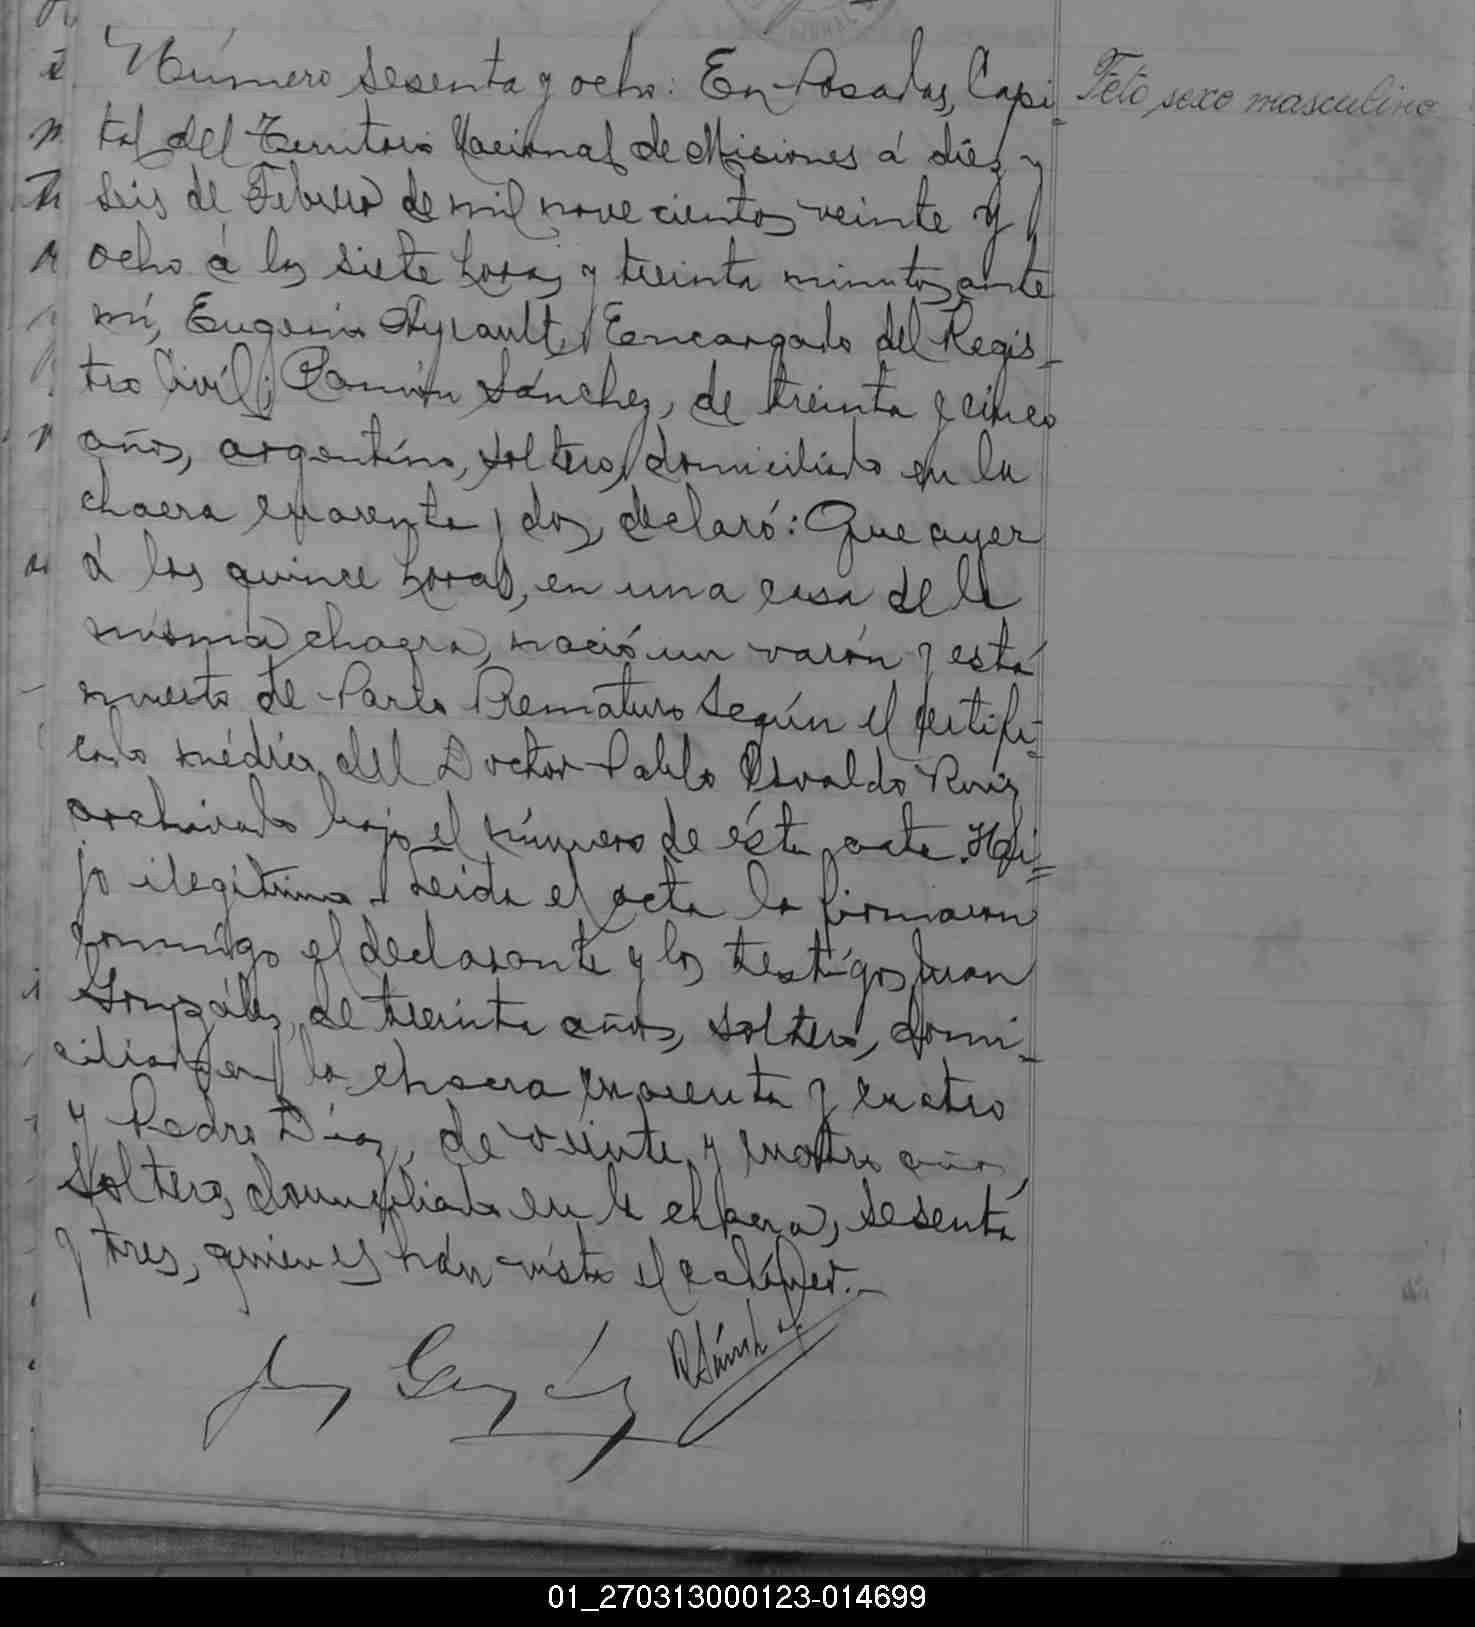 Número sesenta y ocho: En Posadas, Capi-
tal del Territorio Nacional de Misiones á diez y
seis de Febrero de mil novecientos veinte y
ocho á las siete horas y treinta minutos, ante
mí, Eugenio Ayrault, Encargado del Regis-
tro Civil; Ramón Sánchez, de treinta y cinco
años, argentino, soltero, domiciliado en la
chacra cuarenta y dos, declaró: Que ayer
á las quince horas, en una casa de la
misma chacra, nació un varón y está
muerto de Parto Prematuro según el certifi-
cado médico del Doctor Pablo Osvaldo Ruiz
archivado bajo el número de ésta acta. Hi=
jo ilegítimo. Leida el acta la firmaron
conmigo el declarante y los testigos Juan
González, de treinta años, soltero, domi-
ciliado en la chacra cuarenta y cuatro
y Pedro Díaz, de veinte y cuatro años
soltero, domiciliado en la chacra, sesenta
y tres, quienes hán visto el cadáver.-
Feto sexo masculino
Juan González
R Sánchez
01_270313000123-014699